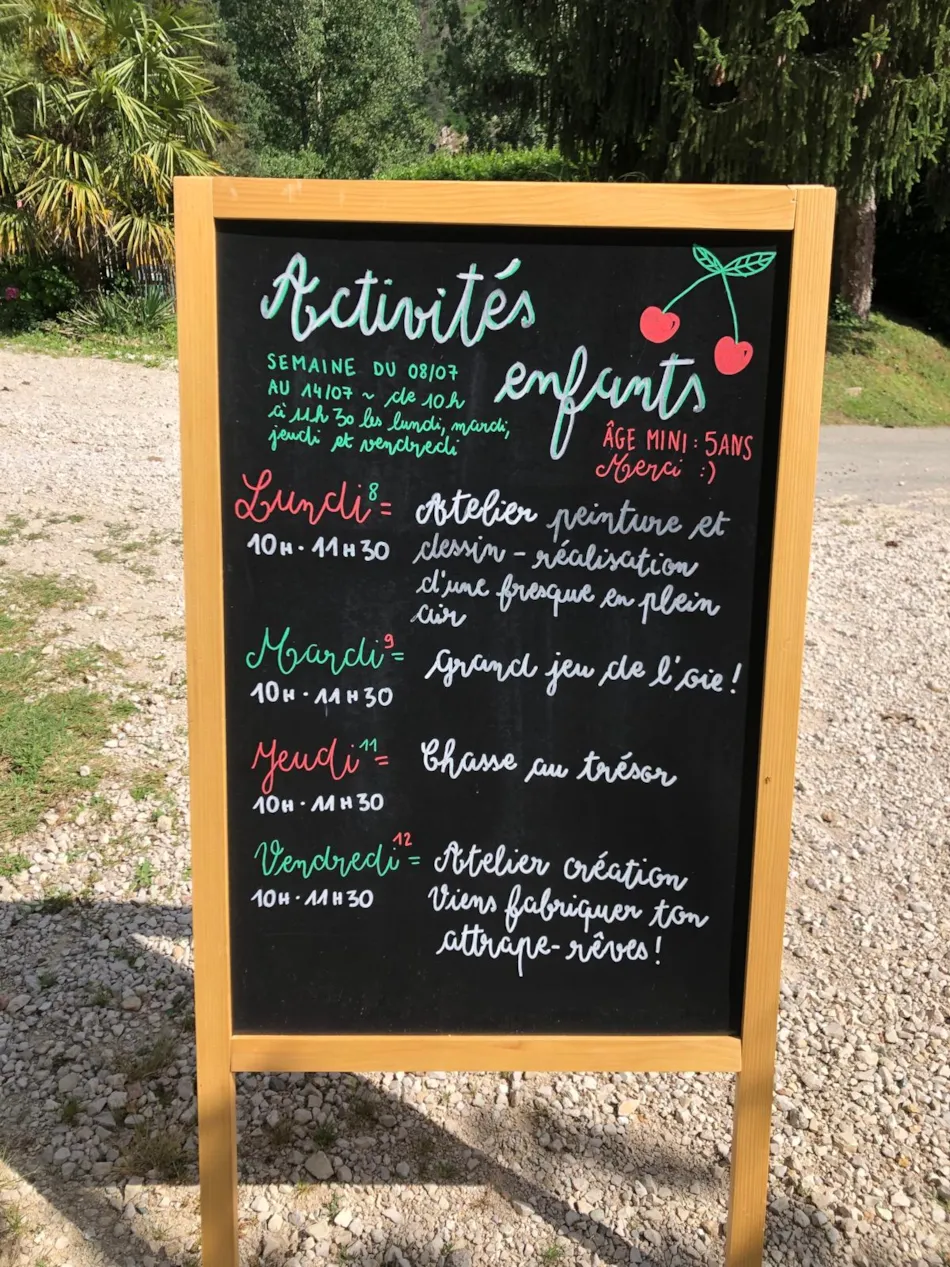 Activités
enfants
SEMAINE DU 08/07
AU 14/07 ~ de 10h
à 11h30 les lundi, mardi,
jeudi et vendredi
ÂGE MINI : 5ANS
Merci :)
Lundi 8 =
10H · 11H30
Atelier peinture et
dessin - réalisation
d'une fresque en plein
air
Mardi 9 =
10H · 11H30
Grand jeu de l'oie !
Jeudi 11 =
10H · 11H30
Chasse au trésor
Vendredi 12 =
10H · 11H30
Atelier création
Viens fabriquer ton
attrape-rêves !